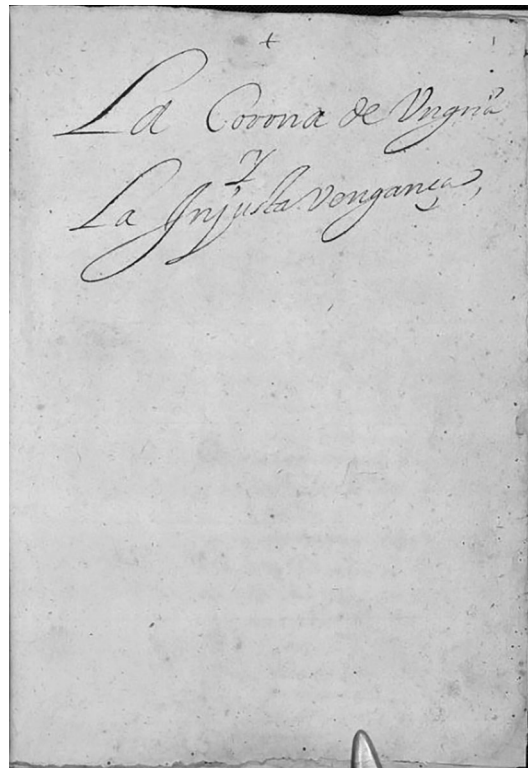 + 1
La Corona de Vngria
Y
La Injusta Vengança,